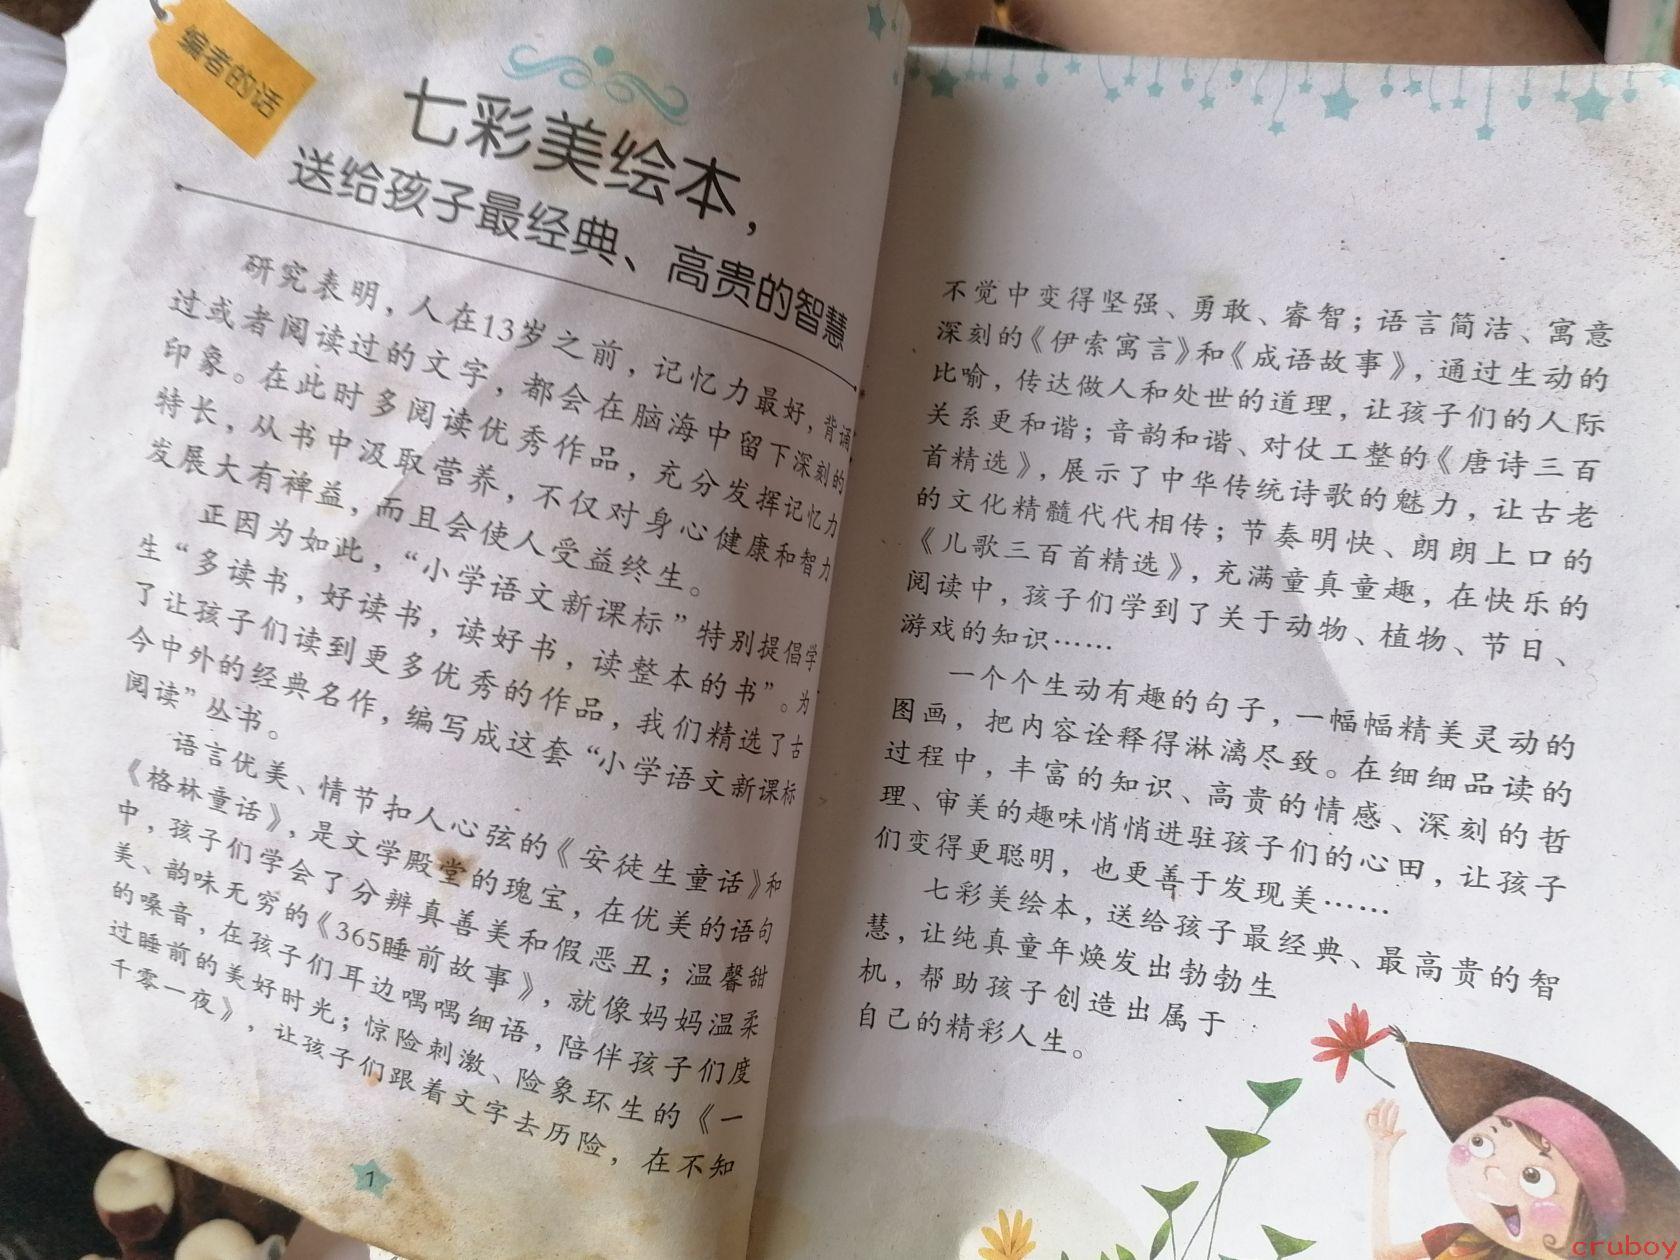 编者的话
七彩美绘本，
送给孩子最经典、高贵的智慧
研究表明，人在13岁之前，记忆力最好，背诵
过或者阅读过的文字，都会在脑海中留下深刻的
印象。在此时多阅读优秀作品，充分发挥记忆力
特长，从书中汲取营养，不仅对身心健康和智力
发展大有裨益，而且会使人受益终生。
正因为如此，“小学语文新课标”特别提倡学
生“多读书，好读书，读好书，读整本的书”。为
了让孩子们读到更多优秀的作品，我们精选了古
今中外的经典名作，编写成这套“小学语文新课标
阅读”丛书。
语言优美、情节扣人心弦的《安徒生童话》和
《格林童话》，是文学殿堂的瑰宝，在优美的语句
中，孩子们学会了分辨真善美和假恶丑；温馨甜
美、韵味无穷的《365睡前故事》，就像妈妈温柔
的嗓音，在孩子们耳边喁喁细语，陪伴孩子们度
过睡前的美好时光；惊险刺激、险象环生的《一
千零一夜》，让孩子们跟着文字去历险，在不知
1
不觉中变得坚强、勇敢、睿智；语言简洁、寓意
深刻的《伊索寓言》和《成语故事》，通过生动的
比喻，传达做人和处世的道理，让孩子们的人际
关系更和谐；音韵和谐、对仗工整的《唐诗三百
首精选》，展示了中华传统诗歌的魅力，让古老
的文化精髓代代相传；节奏明快、朗朗上口的
《儿歌三百首精选》，充满童真童趣，在快乐的
阅读中，孩子们学到了关于动物、植物、节日、
游戏的知识……
一个个生动有趣的句子，一幅幅精美灵动的
图画，把内容诠释得淋漓尽致。在细细品读的
过程中，丰富的知识、高贵的情感、深刻的哲
理、审美的趣味悄悄进驻孩子们的心田，让孩子
们变得更聪明，也更善于发现美……
七彩美绘本，送给孩子最经典、最高贵的智
慧，让纯真童年焕发出勃勃生
机，帮助孩子创造出属于
自己的精彩人生。
cruboy